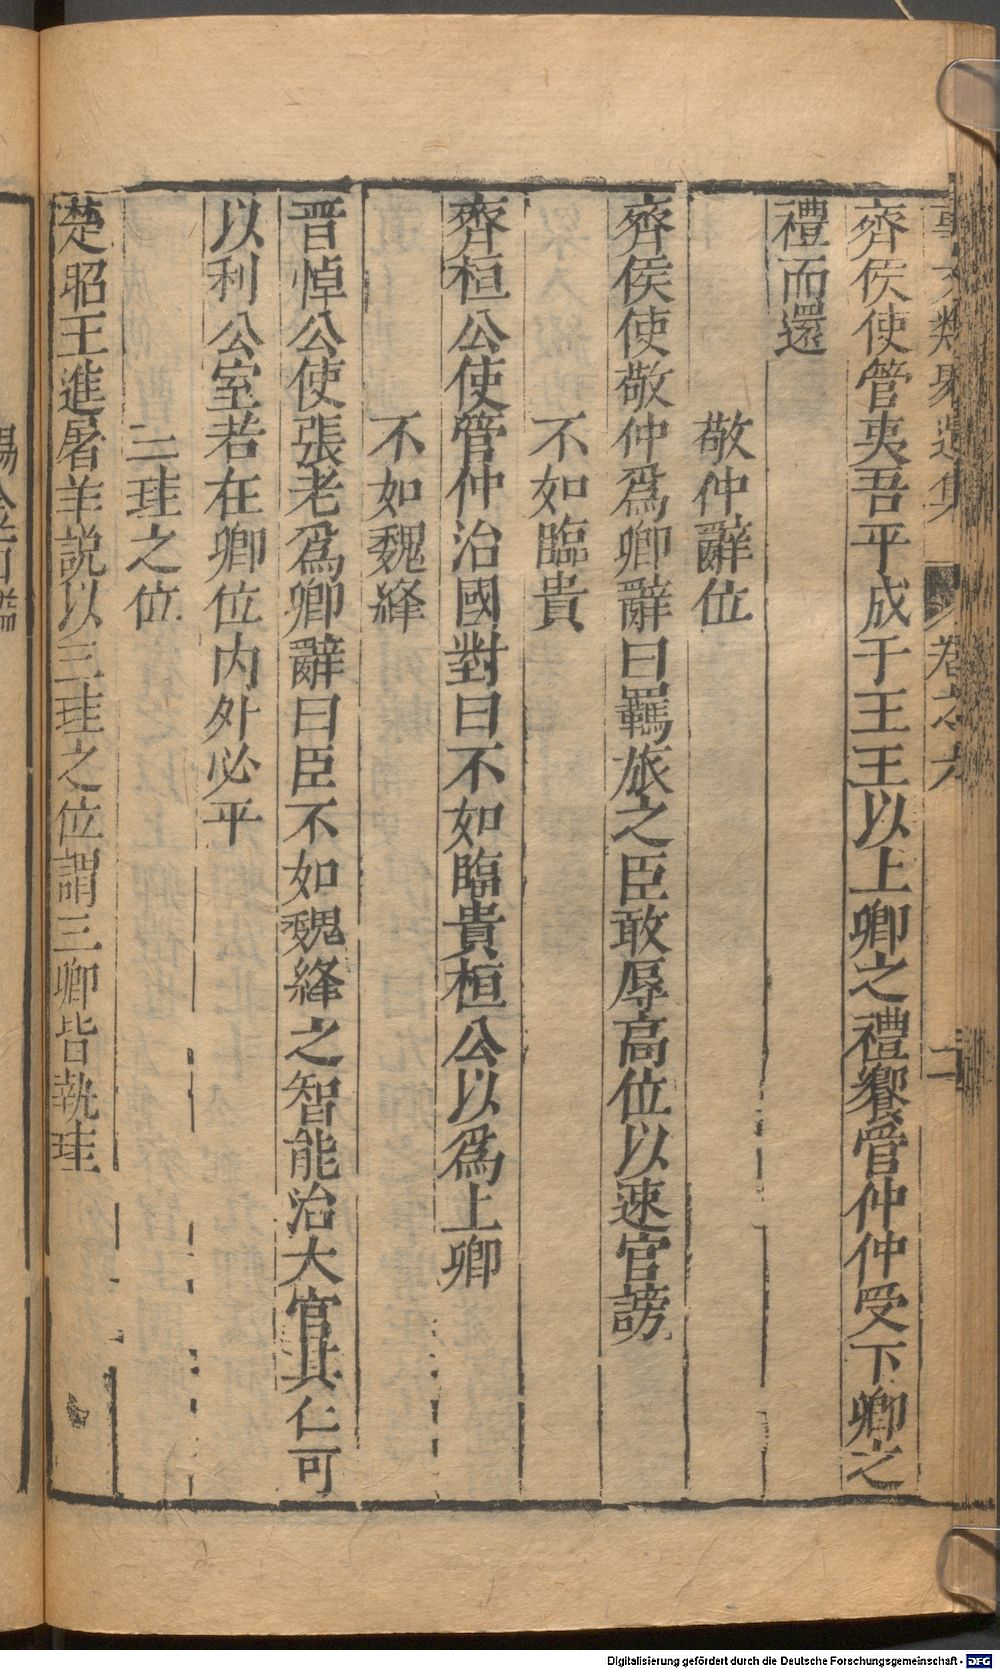 事文類聚遺集 卷之六 二
齊侯使管夷吾平戎于王王以上卿之禮饗管仲仲受下卿之
禮而還
敬仲辭位
齊侯使敬仲爲卿辭曰羈旅之臣敢辱高位以速官謗
不如臨貴
齊桓公使管仲治國對曰不如臨貴桓公以爲上卿
不如魏絳
晋悼公使張老爲卿辭曰臣不如魏絳之智能治大官其仁可
以利公室若在卿位內外必平
三珪之位
楚昭王進屠羊說以三珪之位謂三卿皆執珪
Digitalisierung gefördert durch die Deutsche Forschungsgemeinschaft - DFG